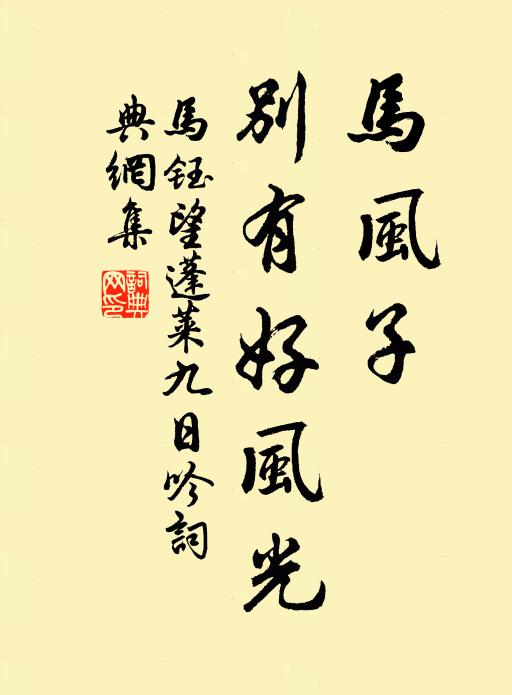 馬風子
別有好風光
馬鈺望蓬萊九日吟詞
典網集
詞典
网印